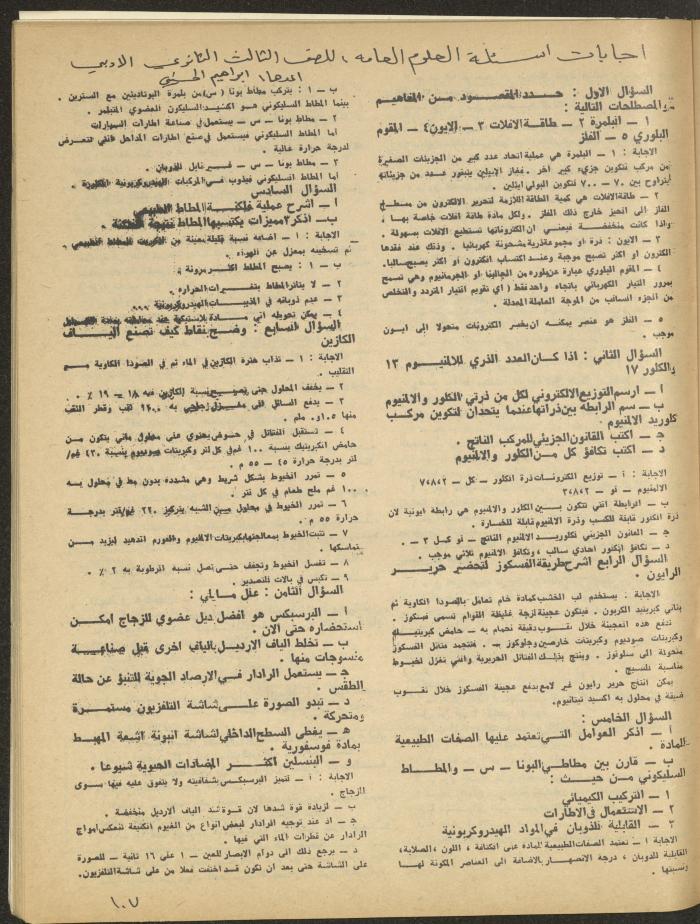 اجابات اسئلة العلوم العامه ، للصف الثالث الثانوي الادبي
اعدها : ابراهيم
السؤال الاول : حدد المقصود من المفاهيم
والمصطلحات التالية :
١ – البلمرة ٢ – طاقة الافلات ٣ – الايون ٤ – المقوم
البلوري ٥ – الفلز
الاجابة : ١ – البلمرة هي عملية اتحاد عدد كبير من الجزيئات الصغيرة
من مركب لتكوين جزيء كبير آخر . فغاز الايثلين يتبلور عدد من جزيئاته
يتراوح بين ٧٠ – ٧٠٠ لتكوين البولي ايثلين .
٢ – طاقة الافلات هي كمية الطاقة اللازمة لتحرير الالكترون من سطح
الفلز الى الحيز خارج ذلك الفلز . ولكل مادة طاقة افلات خاصة بها ،
واذا كانت منخفضة فيعني ان الكتروناتها تستطيع الافلات بسهولة .
٣ – الايون : ذرة او مجموعة ذرية مشحونة كهربائيا . وذلك عند فقدها
الكترون او اكثر تصبح موجبة وعند اكتساب الكترون او اكثر يصبح سالبا.
٤ – المقوم البلوري عبارة عن بلوره من الجالينا او الجرمانيوم وهي تسمح
بمرور التيار الكهربائي باتجاه واحد فقط ( اي تقويم التيار المتردد والتخلص
من الجزء السالب من الموجة الحاملة المعدلة .
٥ – الفلز هو عنصر يمكنه ان يخسر الكترونات متحولا الى ايون
موجب .
السؤال الثاني : اذا كان العدد الذري للالمنيوم ١٣
والكلور ١٧
أ – ارسم التوزيع الالكتروني لكل من ذرتي الكلور والالمنيوم
ب – سم الرابطة بين ذراتها عندما يتحدان لتكوين مركب
كلوريد الالمنيوم .
ج – اكتب القانون الجزيئي للمركب الناتج .
د – اكتب تكافؤ كل من الكلور والالمنيوم
الاجابة : أ – توزيع الكترونات ذرة الكلور – كل – ٧،٨،٢
الالمنيوم – لو – ٣،٨،٢
ب – الرابطة التي تتكون بين الكلور والالمنيوم هي رابطة ايونية لان
ذرة الكلور قابلة للكسب وذرة الالمنيوم قابلة للخسارة .
ج – القانون الجزيئي لكلوريد الالمنيوم الناتج – لو كل ٣ – .
د – تكافؤ الكلور احادي سالب ، وتكافؤ الالمنيوم ثلاثي موجب .
السؤال الرابع اشرح طريقة الفسكوز لتحضير حرير
الرايون .
الاجابة : يستخدم لب الخشب كمادة خام تعامل بالصودا الكاوية ثم
بثاني كبريتيد الكربون . فيتكون عجينة لزجة غليظة القوام تسمى فسكوز .
تدفع هذه العجينة خلال ثقوب دقيقة لحمام به – حامض كبريتيك
وكبريتات صوديوم وكبريتات خارصين وجلوكوز – . فتتجمد فتائل الفسكوز
متحولة الى سلولوز . وينتج بذلك الفتائل الحريرية والتي تغزل لخيوط
مناسبة للنسيج .
يمكن انتاج حرير رايون غير لامع بدفع عجينة الفسكوز خلال ثقوب
ضيقة في محلول به اكسيد تيتانيوم .
السؤال الخامس :
أ – اذكر العوامل التي تعتمد عليها الصفات الطبيعية
للمادة .
ب – قارن بين مطاطي البونا – س – والمطاط
السليكوني من حيث :
١ – التركيب الكيميائي
٢ – الاستعمال في الاطارات
٣ – القابلية للذوبان في المواد الهيدروكربونية
الاجابة ١ – تعتمد الصفات الطبيعية للمادة على الكثافة ، اللون ، الصلابة،
القابلية للذوبان ، درجة الانصهار بالاضافة الى العناصر المكونة لها
ونسبتها .
ب – ١ : يتركب مطاط بونا ( س ) من بلمرة البوتاديثلين مع السترين .
بينما المطاط السليكوني هو اكسيد السليكون العضوي المتبلمر .
٢ – مطاط بونا – س – يستعمل في صناعة اطارات السيارات
أما المطاط السليكوني فيستعمل في صنع اطارات المداخل التي تتعرض
لدرجة حرارة عالية .
٣ – مطاط بونا – س – غير قابل للذوبان .
أما المطاط السليكوني فيذوب في المركبات الهيدروكربونية
السؤال السادس
أ – اشرح عملية فلكنة المطاط الطبيعي
ب – اذكر ٣ مميزات يكتسبها المطاط نتيجة الفلكنة .
الاجابة : ١ – اضافة نسبة قليلة معينة من الكبريت للمطاط الطبيعي
ثم تسخينه بمعزل عن الهواء .
ب – ١ : يصبح المطاط اكثر مرونة
٢ – لا يتأثر المطاط بتغيرات الحراره
٣ – عدم ذوبانه في المذيبات الهيدروكربونية
٤ – يمكن تحويله الى مادة بلاستيكية
السؤال السابع : وضح بنقاط كيف تصنع الياف
الكازين
الاجابة : ١ – تذاب خثرة الكازين في الماء ثم في الصودا الكاوية مع
التقليب .
٢ – يخفف المحلول حتى تصبح نسبة الكازين فيه ١٨ – ١٩ ٪ .
٣ – يدفع السائل الى مغزل زجاجي به ١٤٠٠ ثقب وقطر الثقب
منها ١،٥و. ملم .
٤ – تستقبل الفتائل في حوض يحتوي على محلول مائي يتكون من
حامض الكبريتيك بنسبة ١٠٠ غم في كل لتر وكبريتات صوديوم بنسبة ٤٣٠ غم/
لتر بدرجة حرارة ٤٥ – ٥٥ م .
٥ – تمرر الخيوط بشكل شريط وهي مشدده بدون مط في محلول به
١٠٠ غم ملح طعام في كل لتر .
٦ – تمرر الخيوط في محلول من الشبه بتركيز ٢٢٠ غم/لتر بدرجة
حرارة ٥٥ م .
٧ – تثبت الخيوط بمعالجتها بكبريتات الالمنيوم والفورم الدهيد ليزيد من
تماسكها .
٨ – تغسل الخيوط وتجفف حتى تصل نسبة الرطوبة به ٢ ٪ .
٩ – تكبس في بالات للتصدير .
السؤال الثامن : علل مايلي :
أ – البرسبكس هو افضل بديل عضوي للزجاج امكن
استحضاره حتى الان .
ب – تخلط الياف الارديل بالياف اخرى قبل صناعة
منسوجات منها .
ج – يستعمل الرادار في الارصاد الجوية للتنبؤ عن حالة
الطقس .
د – تبدو الصورة على شاشة التلفزيون مستمرة
ومتحركة .
هـ – يغطى السطح الداخلي لشاشة انبوبة اشعة المهبط
بمادة فوسفورية .
و – البنسلين اكثر المضادات الحيوية شيوعا .
الاجابة : أ – تتميز البرسبكس بشفافيته ولا يتفوق عليه فيها سوى
الزجاج .
ب – لزيادة قوة شدها لان قوة شد الياف الارديل منخفضة .
ج – اذ عند توجيه الرادار لبعض انواع من الغيوم الكثيفة تنعكس امواج
الرادار عن قطرات الماء التي فيها .
د – يرجع ذلك الى دوام الابصار للعين – ١ على ١٦ ثانية – للصورة
على الشاشة حتى بعد ان تكون قد اختفت فعلا من على شاشة التلفزيون.
١٠٧